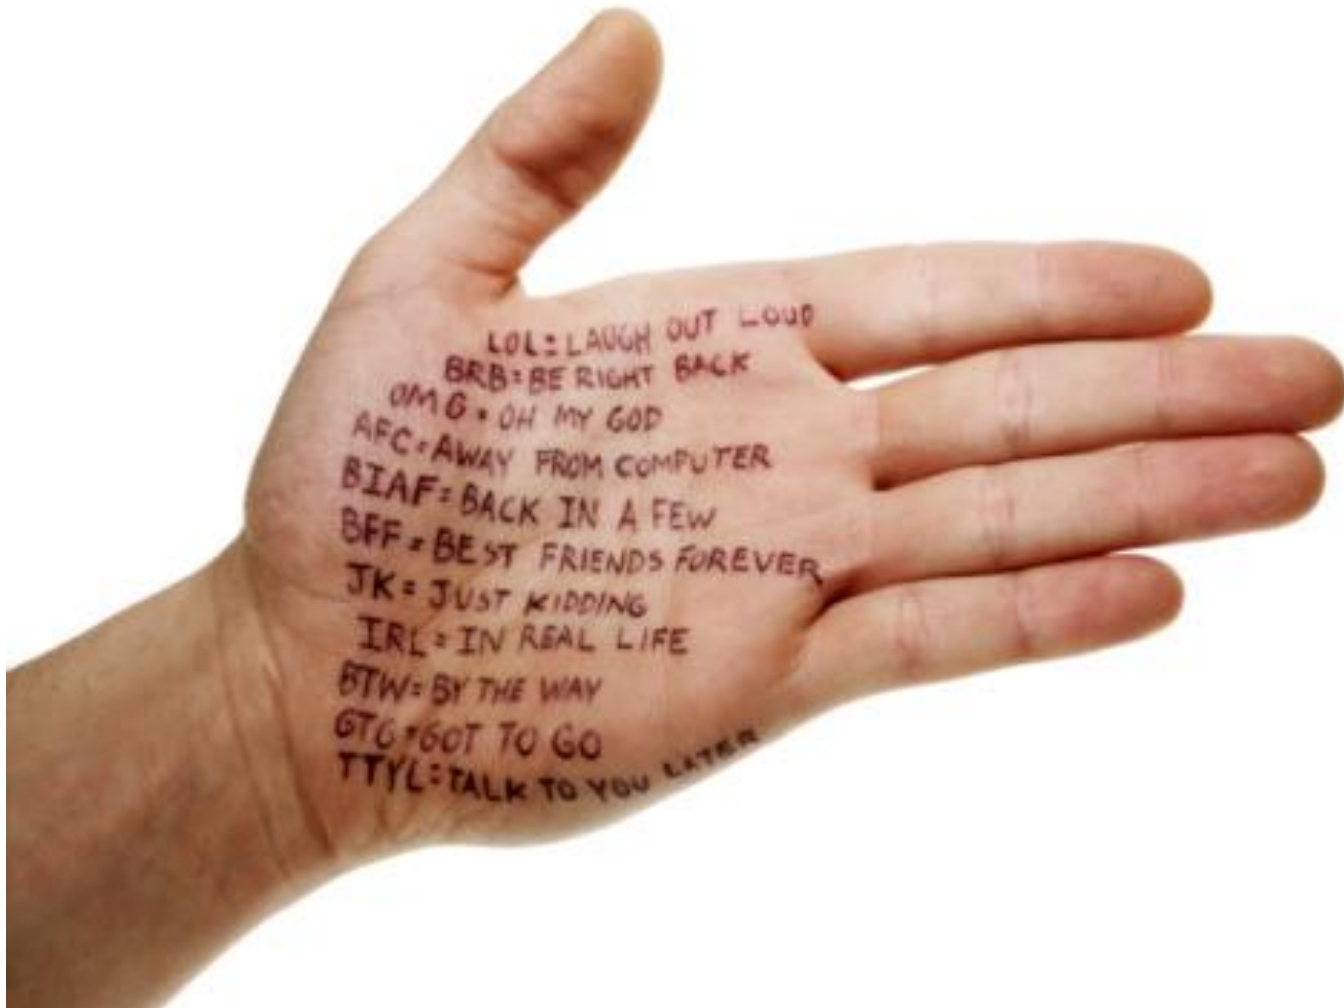 LOL=LAUGH OUT LOUD
BRB=BE RIGHT BACK
OMG=OH MY GOD
AFC=AWAY FROM COMPUTER
BIAF=BACK IN A FEW
BFF=BEST FRIENDS FOREVER
JK=JUST KIDDING
IRL=IN REAL LIFE
BTW=BY THE WAY
GTG=GOT TO GO
TTYL=TALK TO YOU LATER